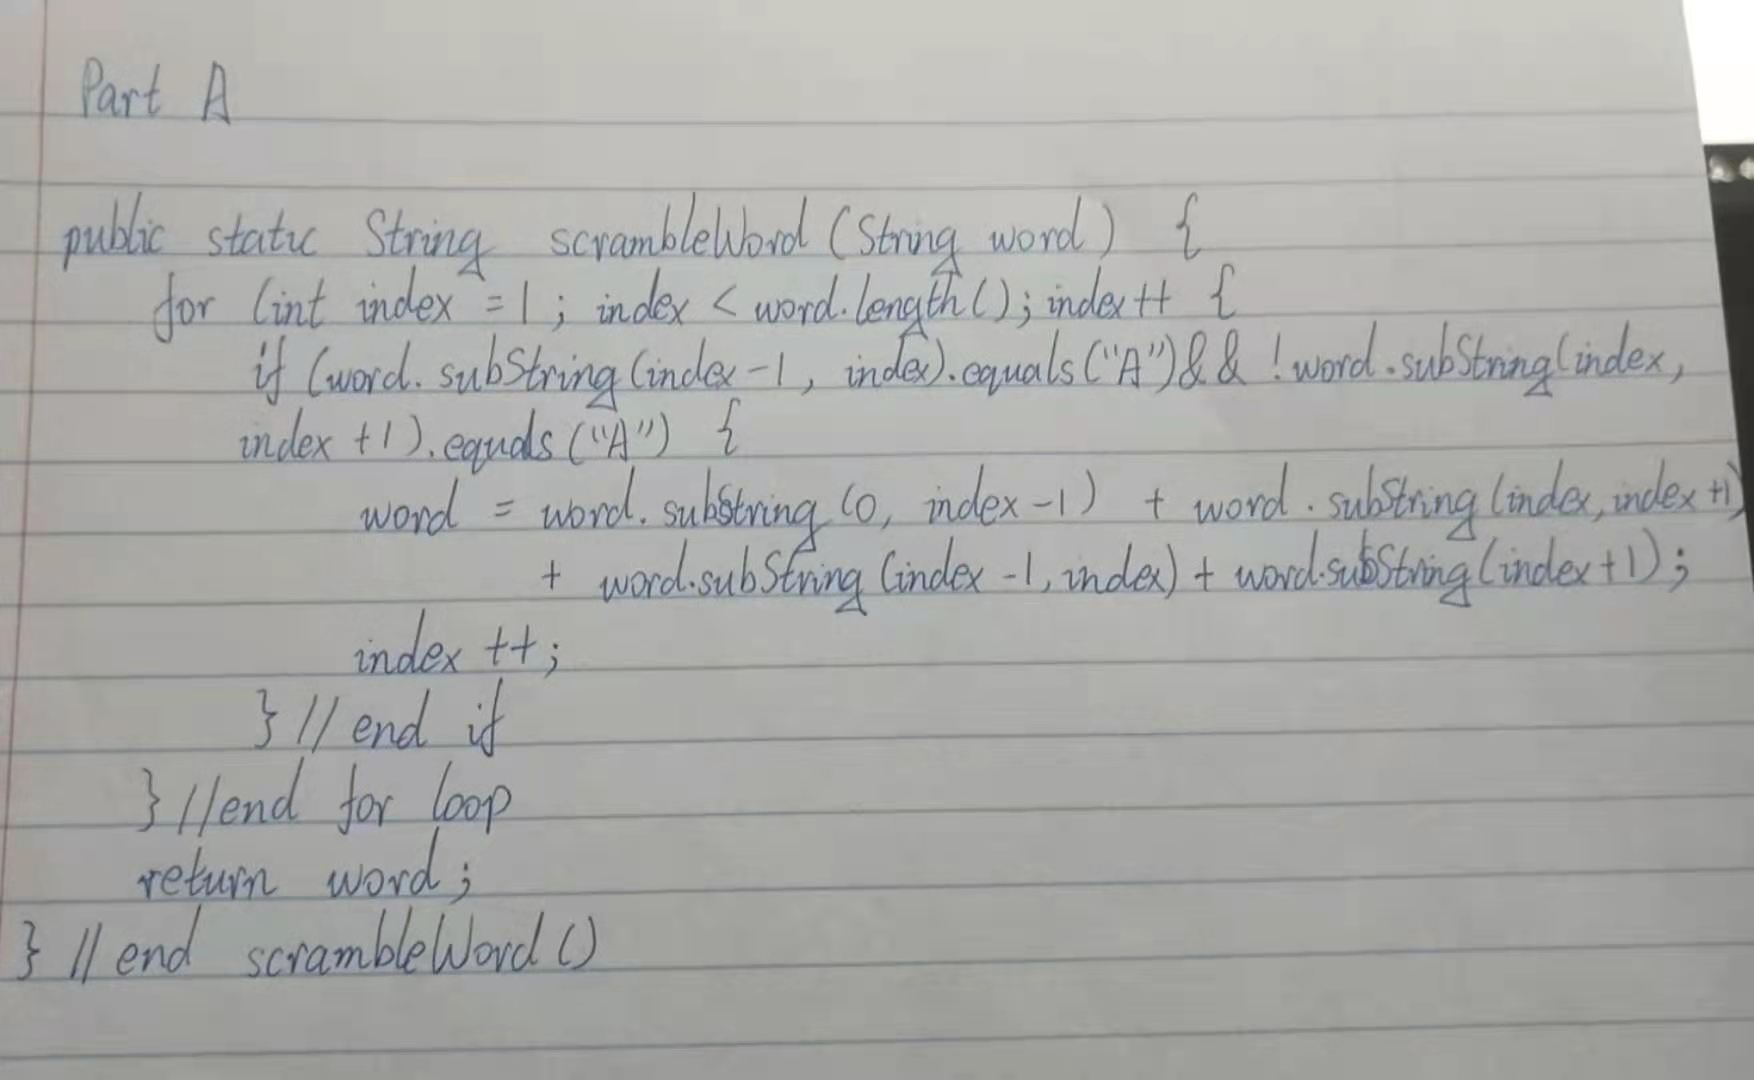 Part A
public static String scrambleWord (String word) {
for (int index = 1 ; index < word.length() ; index ++ {
if (word.subString (index - 1 , index).equals ("A") && ! word.subString (index,
index + 1) . equals ("A") {
word = word. substring (0, index - 1 ) + word . substring (index, index + 1)
+ word.subString (index - 1, index) + word.subString (index + 1) ;
index ++ ;
} // end if
} // end for loop
return word ;
} // end scrambleWord ()